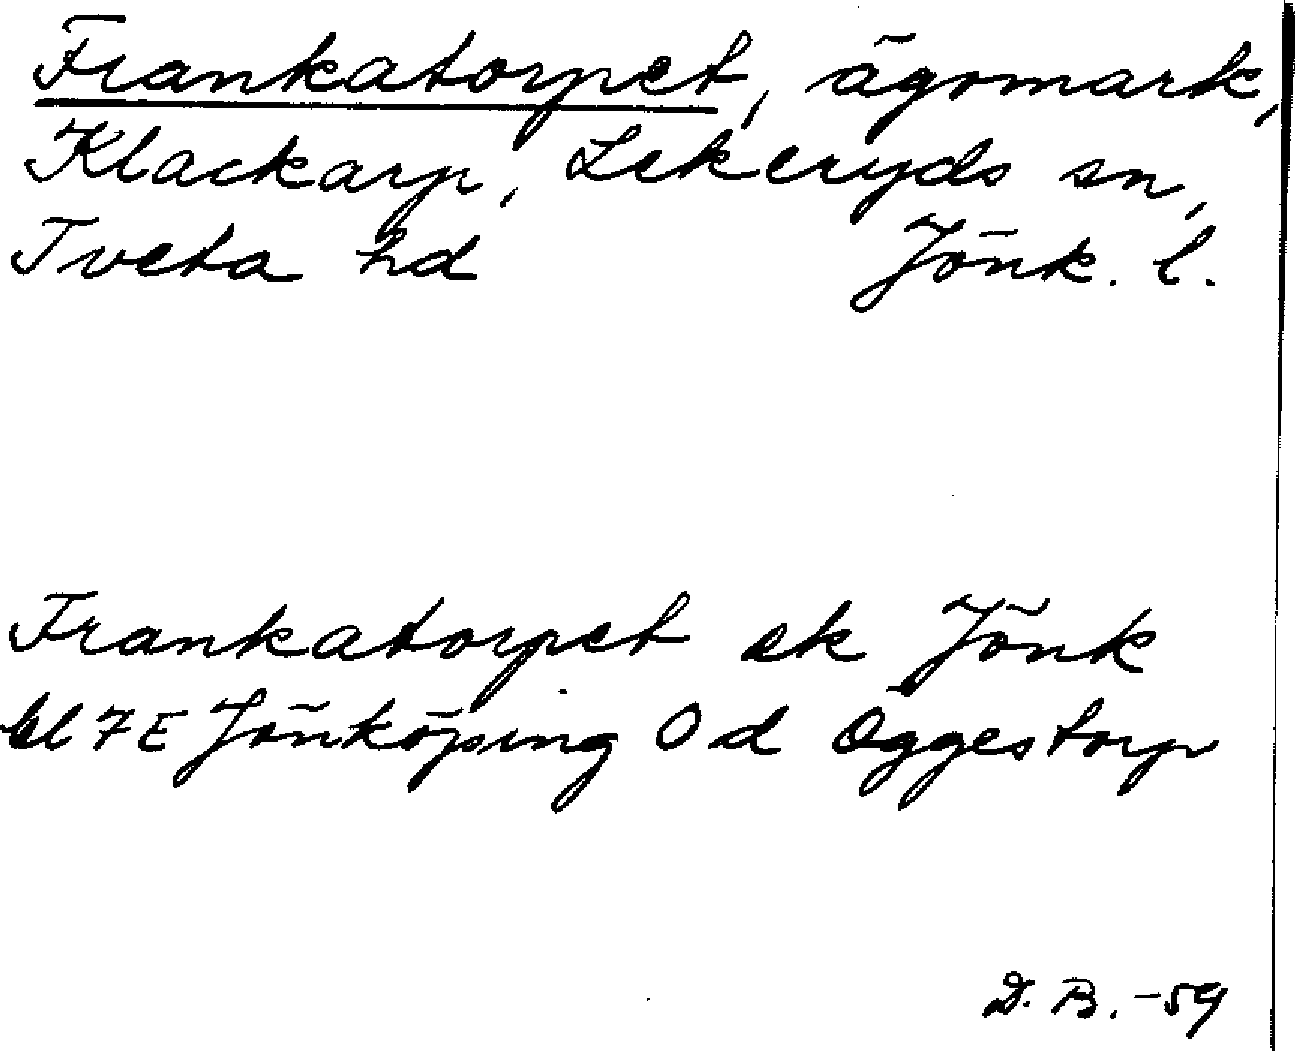 Frankatorpet, ägomark,
Klackarp, Lekeryds sn,
Tveta hd Jönk. l.
Frankatorpet ek Jönk
bl 7E Jönköping Od Öggestorp
D. B. -59